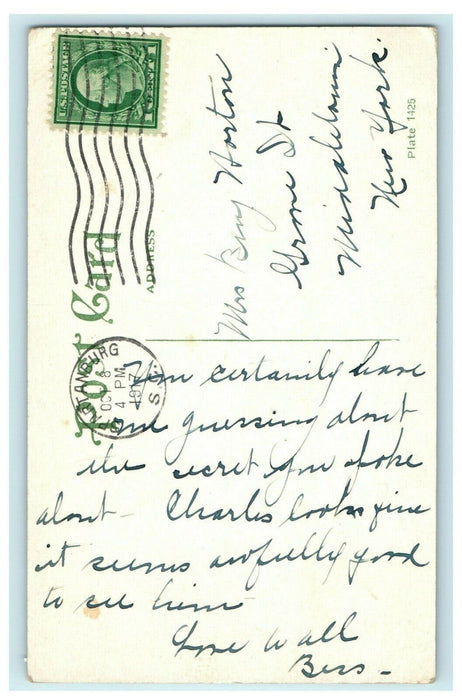 U.S. POSTAGE
1 CENT 1
Post Card
ADDRESS
SPARTANBURG
OCT 8
4 PM
1917
S.C.
Mrs Benj Horton
Grove St
Middletown
New York.
Plate 1425
You certainly have
me guessing about
the secret you spoke
about - Charles looks fine
it seems awfully good
to see him -
Love to all
Bess -